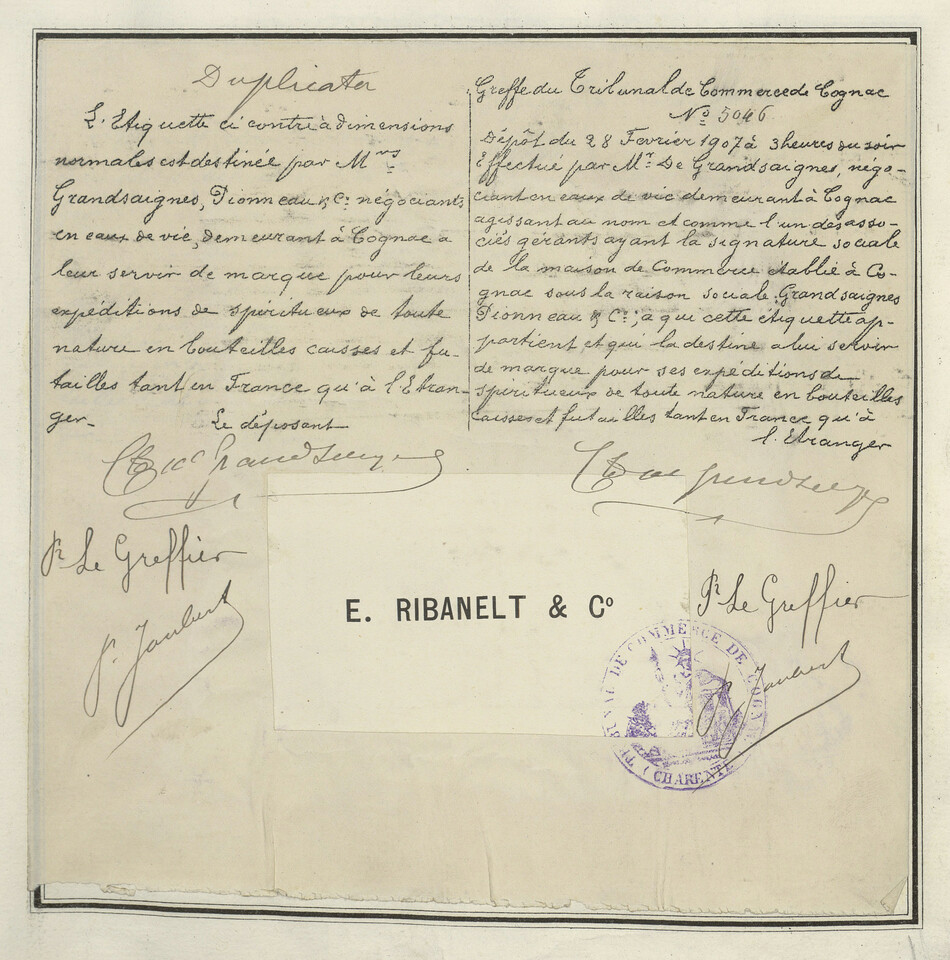 Duplicata
L'Etiquette ci contre à dimensions
normales est destinée par Mrs
Grandsaignes, Pionneau & Cie négociants
en eaux de vie, demeurant à Cognac a
leur servir de marque pour leurs
expéditions de spiritueux de toute
nature en bouteilles caisses et fu-
tailles tant en France qu'à l'Etran-
ger-
Le déposant
Greffe du Tribunal de Commerce de Cognac
No 5046
Dépôt du 28 Fevrier 1907 à 3 heures du soir
Effectué par Mr De Grandsaignes, négo-
ciant en eaux de vie demeurant à Cognac
agissant au nom et comme l'un des asso-
ciés gérants ayant la signature sociale
de la maison de Commerce établie à Co-
gnac sous la raison sociale Grandsaignes
Pionneau & Cie; a qui cette étiquette ap-
partient et qui la destine a lui servir
de marque pour ses expeditions de
spiritueux de toute nature en bouteilles
caisses et futailles tant en France qu'à
l'Etranger
Pr Le Greffier
P. Joubert
E. RIBANELT & Co
Pr Le Greffier
P. Joubert
TRIBUNAL DE COMMERCE DE COGNAC
(CHARENTE)